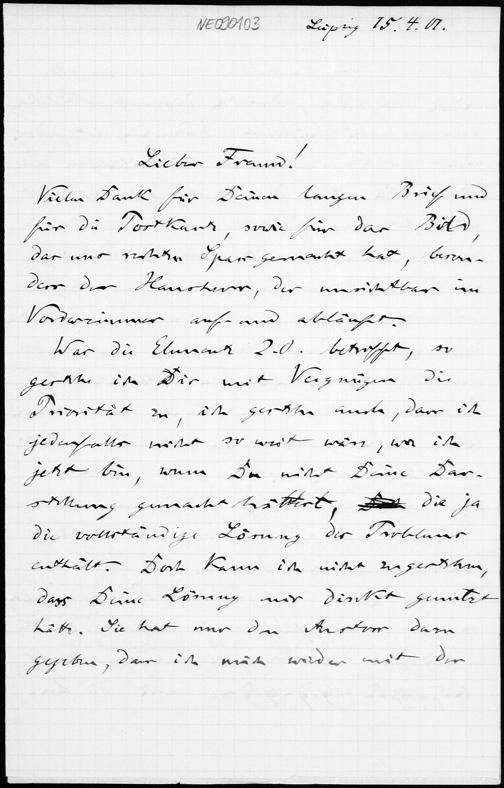 NE090103
Leipzig 15.4.01.
Lieber Freund!
Vielen Dank für Deinen langen Brief und
für die Postkarte, sowie für das Bild,
das uns rechten Spass gemacht hat, beson-
ders der Hausherr, der unsichtbar im
Vorderzimmer auf- und abläuft.
Was die Elemente 2.O. betrifft, so
gestehe ich Dir mit Vergnügen die
Priorität zu, ich gestehe auch, dass ich
jedenfalls nicht so weit wäre, wo ich
jetzt bin, wenn Du nicht Deine Dar-
stellung gemacht hättest, die ja
die vollständige Lösung des Problems
enthält. Doch kann ich nicht zugestehen,
dass Deine Lösung mir direkt genützt
hätte. Sie hat nur den Anstoss dazu
gegeben, dass ich mich wieder mit der